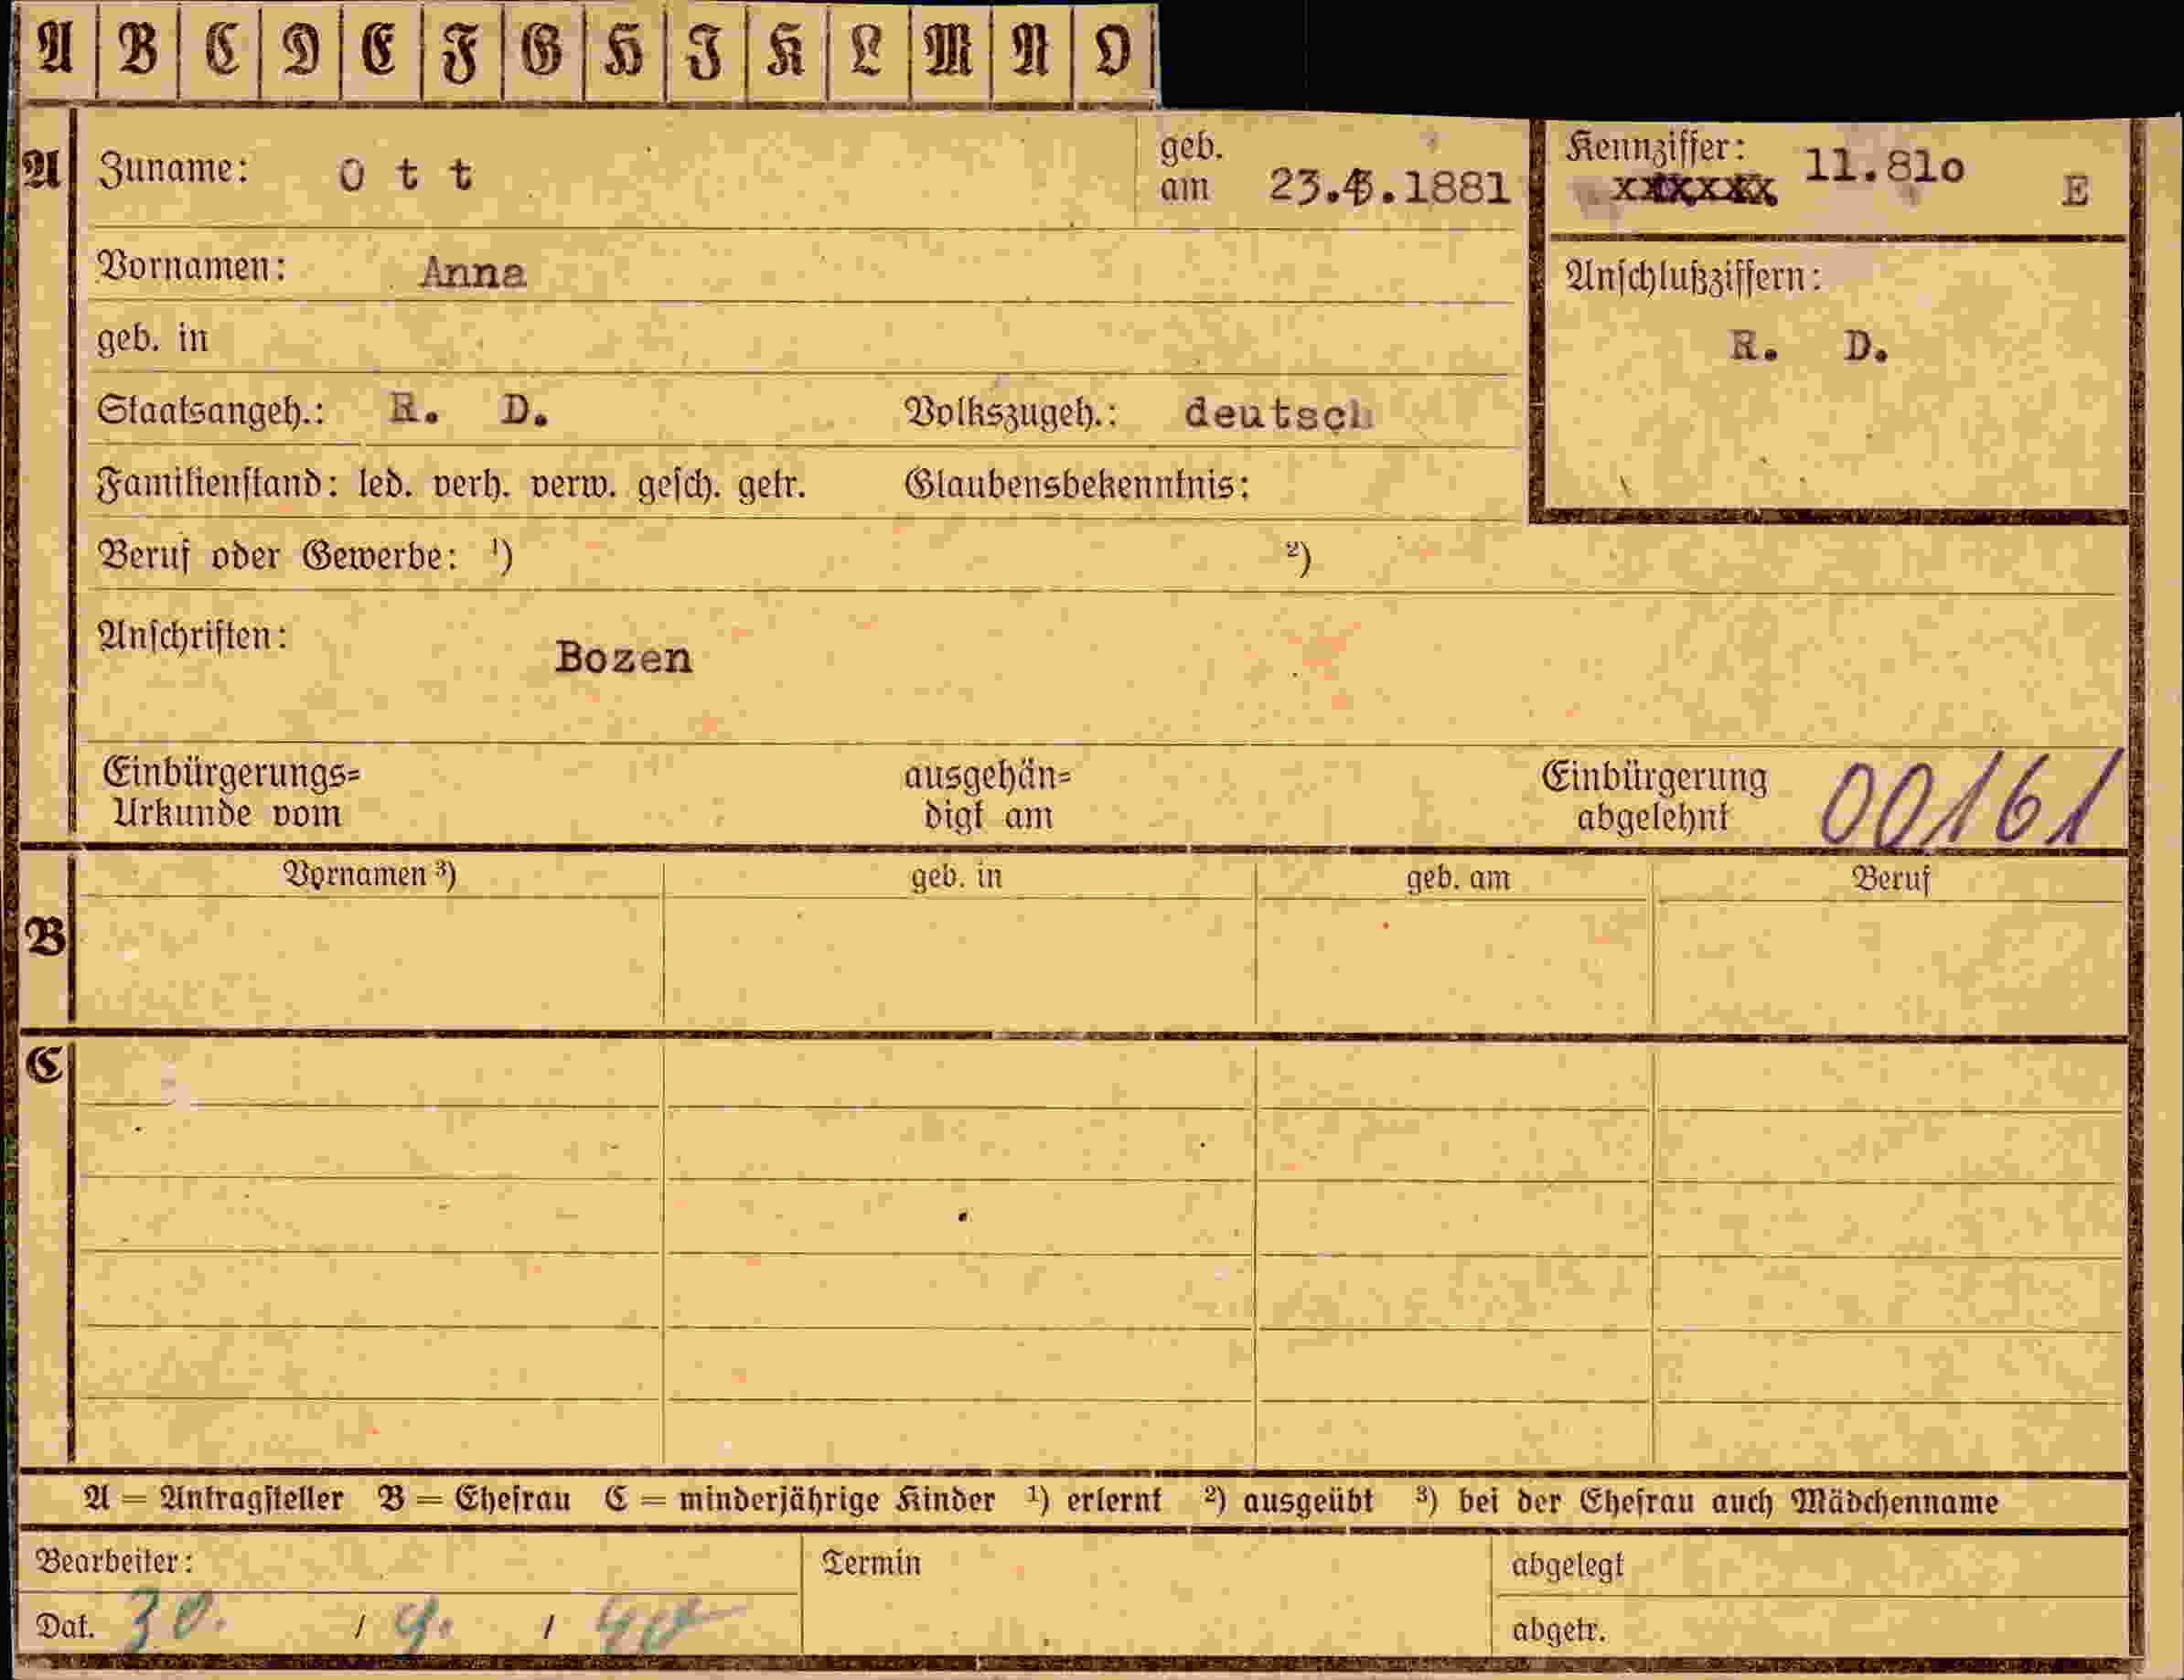 A B C D E F G H I K L M N O
A Zuname: O t t geb. am 23. .1881 Kennziffer: 11.81o E
Vornamen: Anna
geb. in
Anschlußziffern:
R. D.
Staatsangeh.: R. D. Volkszugeh.: deutsch
Familienstand: led. verh. verw. gesch. getr. Glaubensbekenntnis:
Beruf oder Gewerbe: ¹) ²)
Anschriften: Bozen
Einbürgerungs= ausgehän= Einbürgerung 00161
Urkunde vom digt am abgelehnt
Vornamen ³) geb. in geb. am Beruf
B
C
A = Antragsteller B = Ehefrau C = minderjährige Kinder ¹) erlernt ²) ausgeübt ³) bei der Ehefrau auch Mädchenname
Bearbeiter: Termin abgelegt
Dat. 30. / 9. / 40 abgetr.